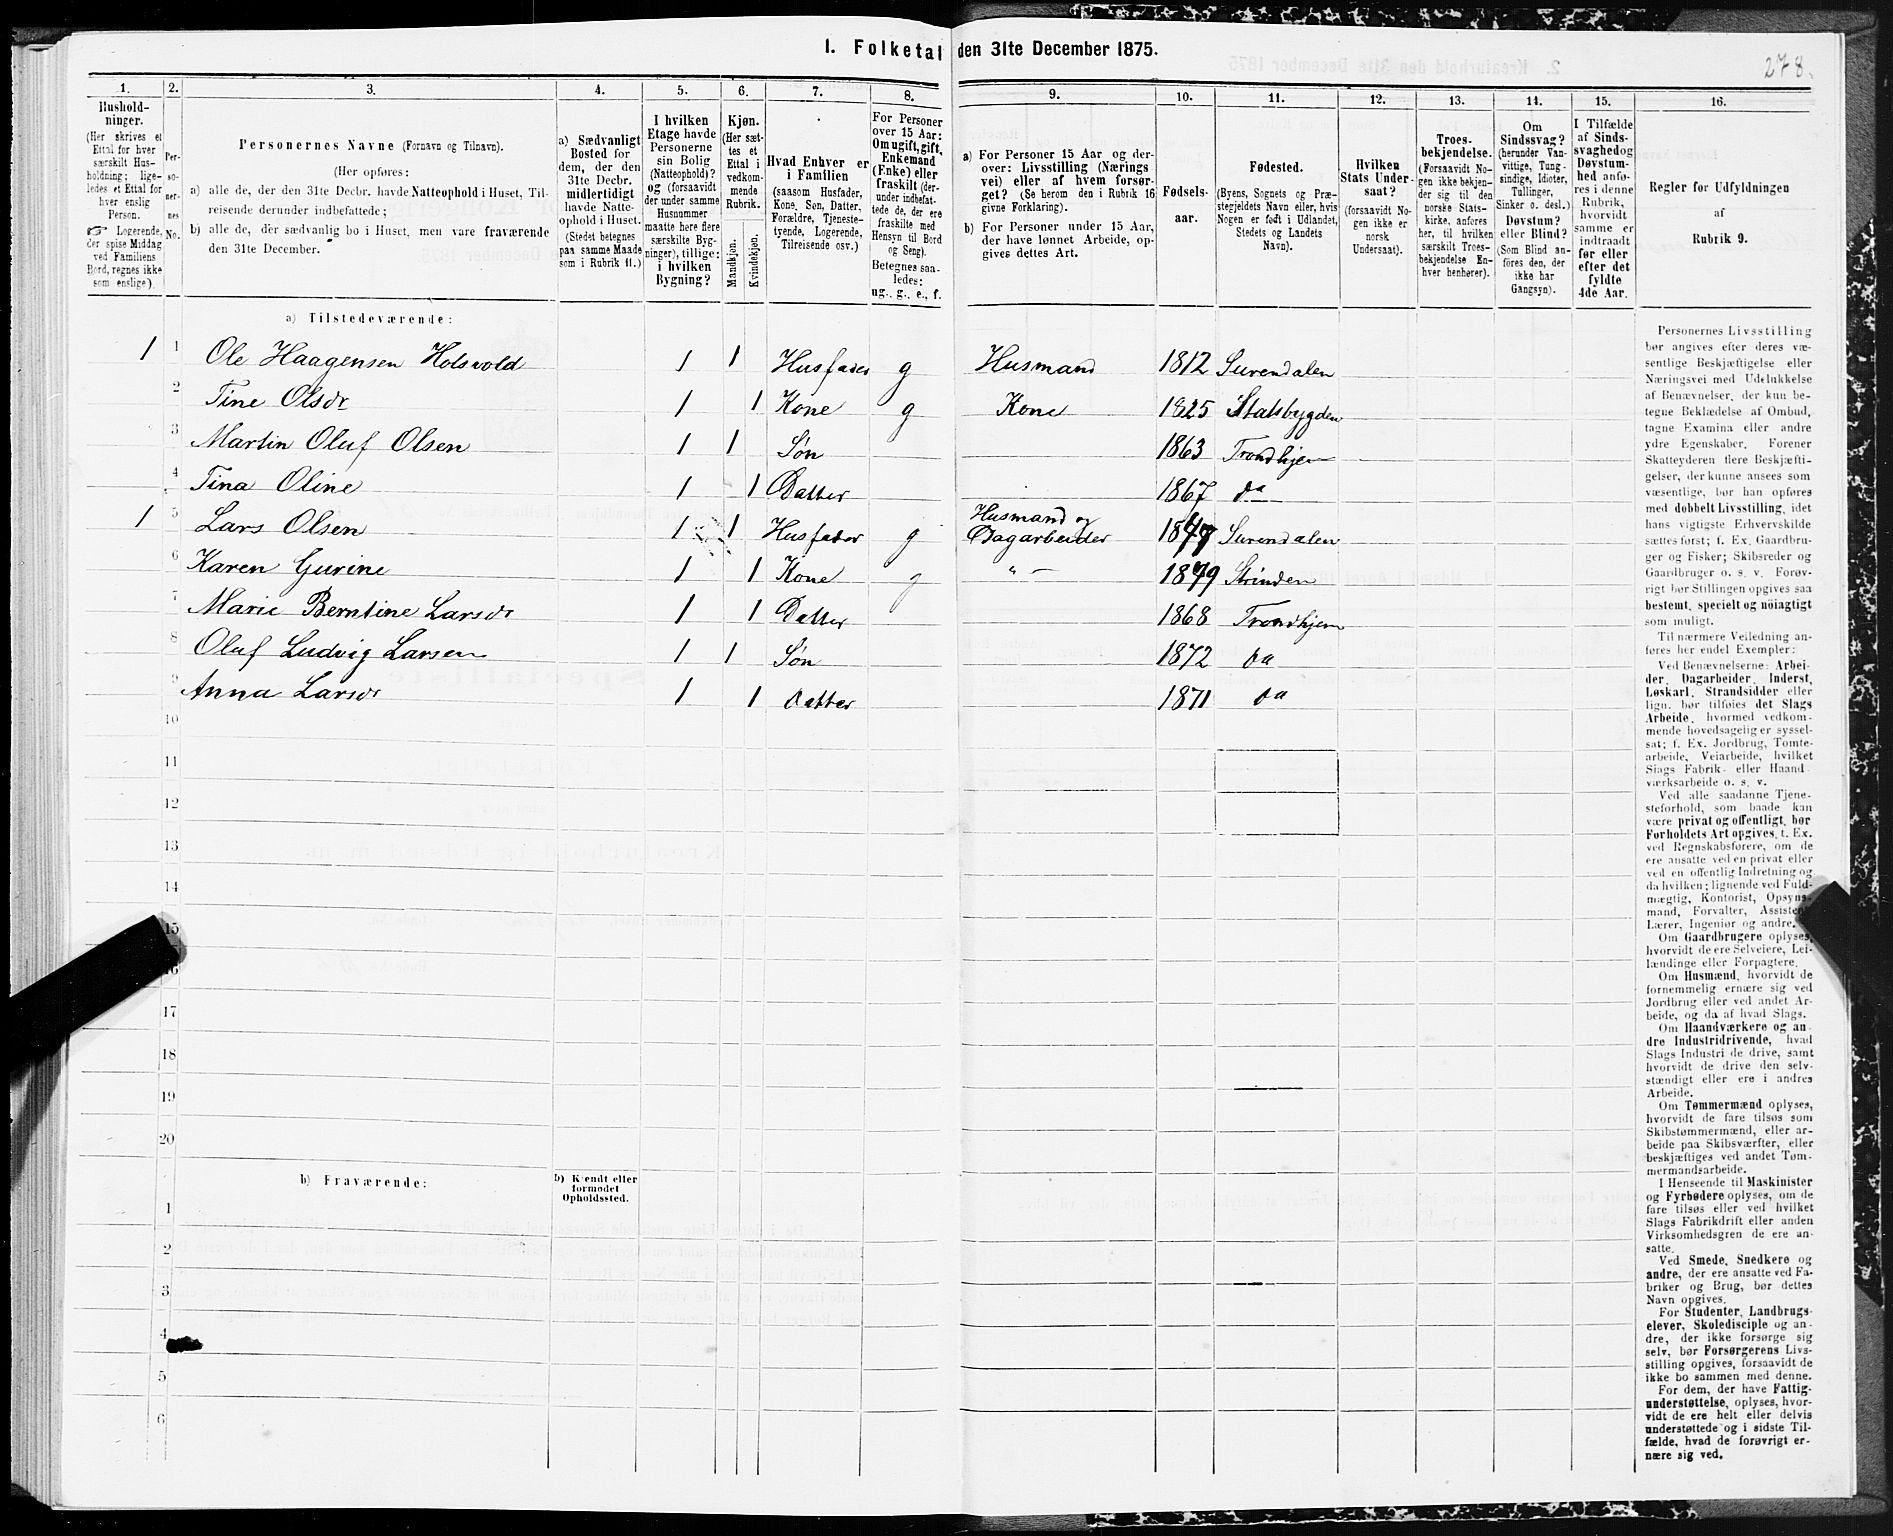 1. Folketal den 31te December 1875.
278.
1. 2. 3. 4. 5. 6. 7. 8. 9. 10. 11. 12. 13. 14. 15. 16.
Hushold-
ninger.
(Her skrives et
Ettal for hver
særskilt Hus-
holdning; lige-
ledes et Ettal for
hver enslig
Person.
☞ Logerende,
der spise Middag
ved Familiens
Bord, regnes ikke
som enslige).
Per-
so-
ner-
nes
No.
Personernes Navne (Fornavn og Tilnavn).
(Her opføres:
a) alle de, der den 31te Decbr. havde Natteophold i Huset, Til-
reisende derunder indbefattede;
b) alle de, der sædvanlig bo i Huset, men vare fraværende
den 31te December.
a) Sædvanligt
Bosted for
dem, der den
31te Decbr.
midlertidigt
havde Natte-
ophold i Huset.
(Stedet betegnes
paa samme Maade
som i Rubrik 11.)
I hvilken
Etage havde
Personerne
sin Bolig
(Natteophold)?
og (forsaavidt
der under samme
Husnummer
maatte høre flere
særskilte Byg-
ninger), tillige:
i hvilken
Bygning?
Kjøn.
(Her sæt-
tes et
Ettal i
vedkom-
mende
Rubrik.
Mandkjøn.
Kvindekjøn.
Hvad Enhver er
i Familien
(saasom Husfader,
Kone, Søn, Datter,
Forældre, Tjeneste-
tyende, Logerende,
Tilreisende osv.)
For Personer
over 15 Aar:
Om ugift, gift,
Enkemand
(Enke) eller
fraskilt (der-
under indbefat-
tede de, der ere
fraskilte med
Hensyn til Bord
og Seng).
Betegnes saa-
ledes:
ug., g., e., f.
a) For Personer 15 Aar og der-
over: Livsstilling (Nærings
vei) eller af hvem forsør-
get? (Se herom den i Rubrik 16
givne Forklaring).
b) For Personer under 15 Aar,
der have lønnet Arbeide, op-
gives dettes Art.
Fødsels-
aar.
Fødested.
(Byens, Sognets og Præ-
stegjeldets Navn eller, hvis
Nogen er født i Udlandet,
Stedets og Landets
Navn).
Hvilken
Stats Under-
saat?
(forsaavidt No-
gen ikke er
norsk
Undersaat).
Troes-
bekjendelse.
(Forsaavidt No-
gen ikke bekjen-
der sig til den
norske Stats-
kirke, anføres
her, til hvilken
særskilt Troes-
bekjendelse En-
hver henhører).
Om
Sindssvag?
(herunder Van-
vittige, Tung-
sindige, Idioter,
Tullinger,
Sinker o. desl.)
Døvstum?
eller Blind?
(Som Blind an-
føres den, der
ikke har
Gangsyn).
I Tilfælde
af Sinds-
svaghed og
Døvstum-
hed anfø-
res i denne
Rubrik,
hvorvidt
samme er
indtraadt
før eller
efter det
fyldte
4de Aar.
Regler for Udfyldningen
af
Rubrik 9.
a) Tilstedeværende:
1 1 Ole Haagensen Holsvold 1 1 Husfader g Husmand 1812 Surendalen
2 Tine Olsdr 1 1 Kone g Kone 1825 Statsbygden
3 Martin Oluf Olsen 1 1 Søn 1863 Trondhjem
4 Tina Oline 1 1 Datter 1867 da
1 5 Lars Olsen 1 1 Husfader g Husmand og Dagarbeider 1847 Surendalen
6 Karen Gurine 1 1 Kone g " — 1849 Strinden
7 Marie Berntine Larsdr 1 1 Datter 1868 Trondhjem
8 Oluf Ludvig Larsen 1 1 Søn 1872 da
9 Anna Larsdr 1 1 Datter 1871 da
10
11
12
13
14
15
16
17
18
19
20
b) Fraværende:
b) Kjendt eller
formodet
Opholdssted.
1
2
3
4
5
6
Personernes Livsstilling
bør angives efter deres væ-
sentlige Beskjæftigelse eller
Næringsvei med Udelukkelse
af Benævnelser, der kun be-
tegne Beklædelse af Ombud,
tagne Examina eller andre
ydre Egenskaber. Forener
Skatteyderen flere Beskjæfti-
gelser, der kunne ansees som
væsentlige, bør han opføres
med dobbelt Livsstilling, idet
hans vigtigste Erhvervskilde
sættes først; f. Ex. Gaardbru-
ger og Fisker; Skibsreder og
Gaardbruger o. s. v. Forøv-
rigt bør Stillingen opgives saa
bestemt, specielt og nøiagtigt
som muligt.
Til nærmere Veiledning an-
føres her endel Exempler:
Ved Benævnelserne: Arbei-
der, Dagarbeider, Inderst,
Løskarl, Strandsidder eller
lign. bør tilføies det Slags
Arbeide, hvormed vedkom-
mende hovedsagelig er syssel-
sat; f. Ex. Jordbrug, Tomte-
arbeide, Veiarbeide, hvilket
Slags Fabrik- eller Haand
værksarbeide o. s. v.
Ved alle saadanne Tjene-
steforhold, som baade kan
være privat og offentligt, bør
Forholdets Art opgives, t. Ex.
ved Regnskabsførere, om de
ere ansatte ved en privat eller
ved en offentlig Indretning og
da hvilken; lignende ved Fuld-
mægtig, Kontorist, Opsyns-
mand, Forvalter, Assistent,
Lærer, Ingeniør og andre.
Om Gaardbrugere oplyses,
hvorvidt de ere Selveiere, Lei-
lændinge eller Forpagtere.
Om Husmænd, hvorvidt de
fornemmelig ernære sig ved
Jordbrug eller ved andet Ar-
beide, og da af hvad Slags.
Om Haandværkere og an-
dre Industridrivende, hvad
Slags Industri de drive, samt
hvorvidt de drive den selv-
stændigt eller ere i andres
Arbeide.
Om Tømmermænd oplyses,
hvorvidt de fare tilsøs som
Skibstømmermænd, eller ar-
beide paa Skibsværfter, eller
beskjæftiges ved andet Tøm-
mermandsarbeide.
I Henseende til Maskinister
og Fyrbødere oplyses, om de
fare tilsøs eller ved hvilket
Slags Fabrikdrift eller anden
Virksomhedsgren de ere an-
satte.
Ved Smede, Snedkere og
andre, der ere ansatte ved Fa-
briker og Brug, bør dettes
Navn opgives.
For Studenter, Landbrugs-
elever, Skoledisciple og an-
dre, der ikke forsørge sig
selv, bør Forsørgerens Livs-
stilling opgives, forsaavidt de
ikke bo sammen med denne.
For dem, der have Fattig-
understøttelse, oplyses, hvor-
vidt de ere helt eller delvis
understøttede og i sidste Til-
fælde, hvad de forøvrigt er-
nære sig ved.